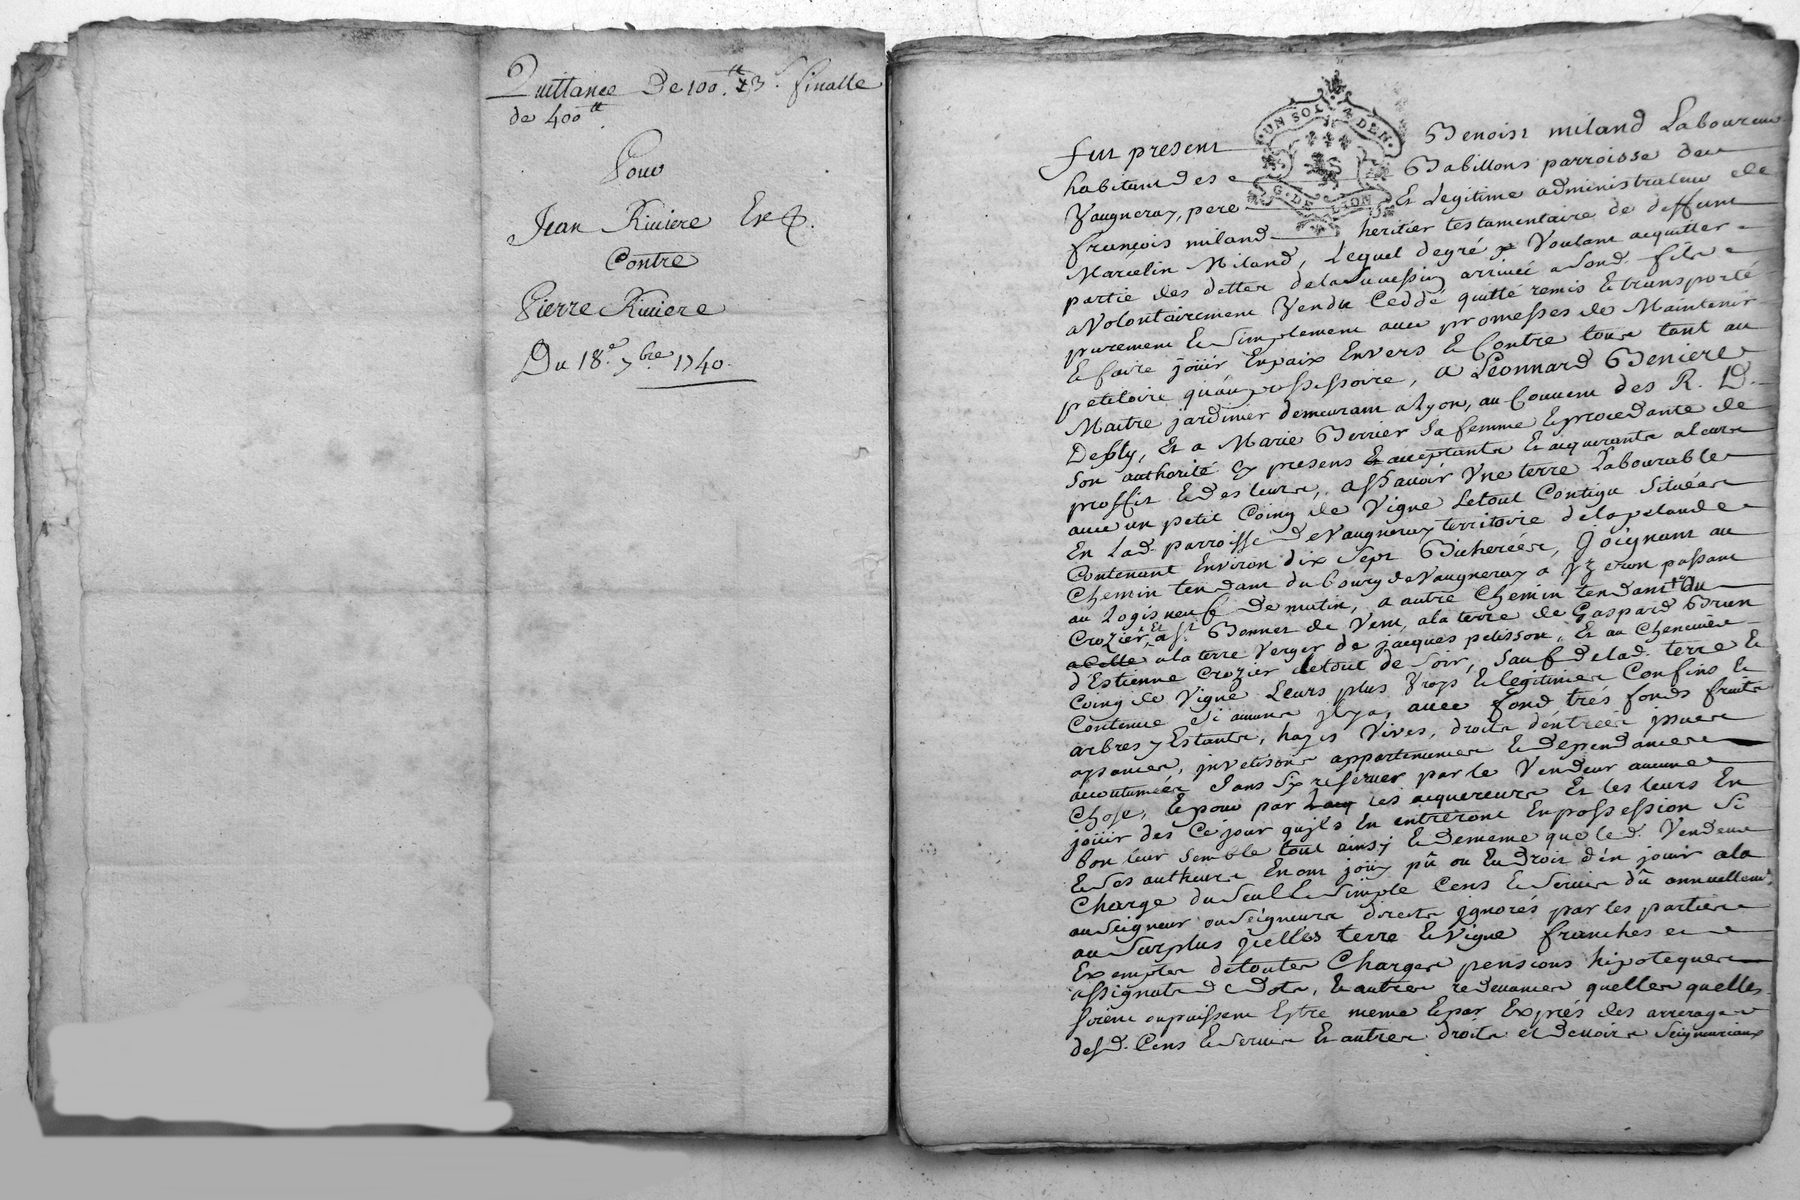 Quittance De 100.tt 73.s finalle
de 400tt
Pour
Jean Riviere
Contre
Pierre Riviere
Du 18.e 7.bre 1740.
UN SOL 4 DEN.
G. DE LION
fut present Benoist miland Laboureur
habitant des Babillons parroisse de
Vaugneray, pere Et Legitime administrateur de
françois miland heritier testamentaire de deffunt
Marcelin Miland, Lequel degré Voulant acquitter
partie des dettes dela Succession arrivée a Sond. fils
a Volontairement Vendu Ceddé quitté remis & transporté
purement & Simplement avec promesses de Maintenir
& faire joüir Enpaix Envers & Contre tous tant au
petitoire qu'au possessoire, a Léonnard Beniere
Maitre jardinier demeurant a Lyon, au Couvent des R. D.
Deßly, Et a Marie Berrier Sa femme & procedante de
Son authorité Cy presens acceptants & acquerants a leurs
proffit & des leurs, assavoir Une terre Labourable
avec un petit Coing de Vigne Letout Contigu Situées
En Lad. parroisse de Vaugneray territoire de lapelaude
Contenant Environ dix Sept Bicherées, Joignant au
Chemin tendant du bourg de Vaugneray a yzeron passant
au Logis neuf De matin, a autre Chemin tendant du
Crozier, Et a St. Bonnet de Vent, a la terre de Gaspard Brun
a la terre Verger de jacques pelisson, Et au Cheneviere
d'Estienne Crozier detout de Soir, Sauf delad. terre &
Coing de Vigne Leurs plus Vrays & legitimes Confins &
Contenue Si aucuns ily a, avec fond trés fonds fruits
arbres y Estants, hayes Vives, droits d'éntrées issues
aysances, jnvetisons appartenances & dépendances
accoutumées Sans Six reserver par le Vendeur aucune
Chose, & pour par les acquereurs Et les leurs En
joüir des Cejour quils En entreront Enpossession Si
bon leur Semble tout ainsy & dememe que led. Vendeur
& Ses autheurs En ont joüy pû ou Eu droit d'én jouir a la
Charge du Seul & Simple Cens & Servis dû annuellemt.
au Seigneur ou Seigneurs directs jgnorés par les parties
au Surplus jcelles terre & Vigne franches et
Exemptes detoutes Charges pensions hipoteques
assignats de dots, & autres redevances quelles quelles
Soient ou puissent Estre meme & par Exprés des arrerages
desd. Cens & Servis Et autres droits et devoirs Seigneuriaux